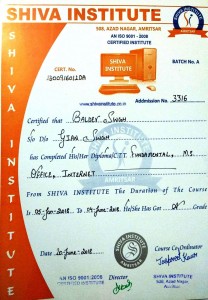 SHIVA INSTITUTE
SHIVA INSTITUTE
588, AZAD NAGAR, AMRITSAR
AN ISO 9001 : 2008
CERTIFIED INSTITUTE
BATCH No. A
CERT. No.
SHIVA
INSTITUTE
www.shivainstitute.co.in
Addmission No. 3316
Certified that Baldev Singh
S/o D/o Gian Singh
has Completed His/Her Diploma/I.T. Fundamental, M.S.
Office, Internet
From SHIVA INSTITUTE The Duration of The Course
is 05-Jan-2018 To 04-June-2018 He/She Has Got Grade
Date 20-June-2018
Course Co-ordinator
Director
AN ISO 9001:2008
CERTIFIED INSTITUTE
SHIVA INSTITUTE
588, Azad Nagar